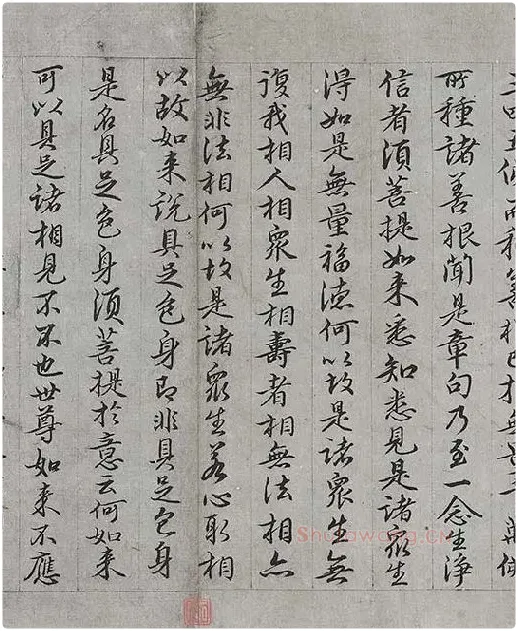 四五佛而種善根已於無量千萬佛
所種諸善根聞是章句乃至一念生淨
信者須菩提如来悉知悉見是諸眾生
得如是無量福德何以故是諸眾生無
復我相人相眾生相壽者相無法相亦
無非法相何以故是諸眾生若心取相
以故如来說具足色身即非具足色身
是名具足色身須菩提於意云何如来
可以具足諸相見不不也世尊如来不應
Shufawang.CN